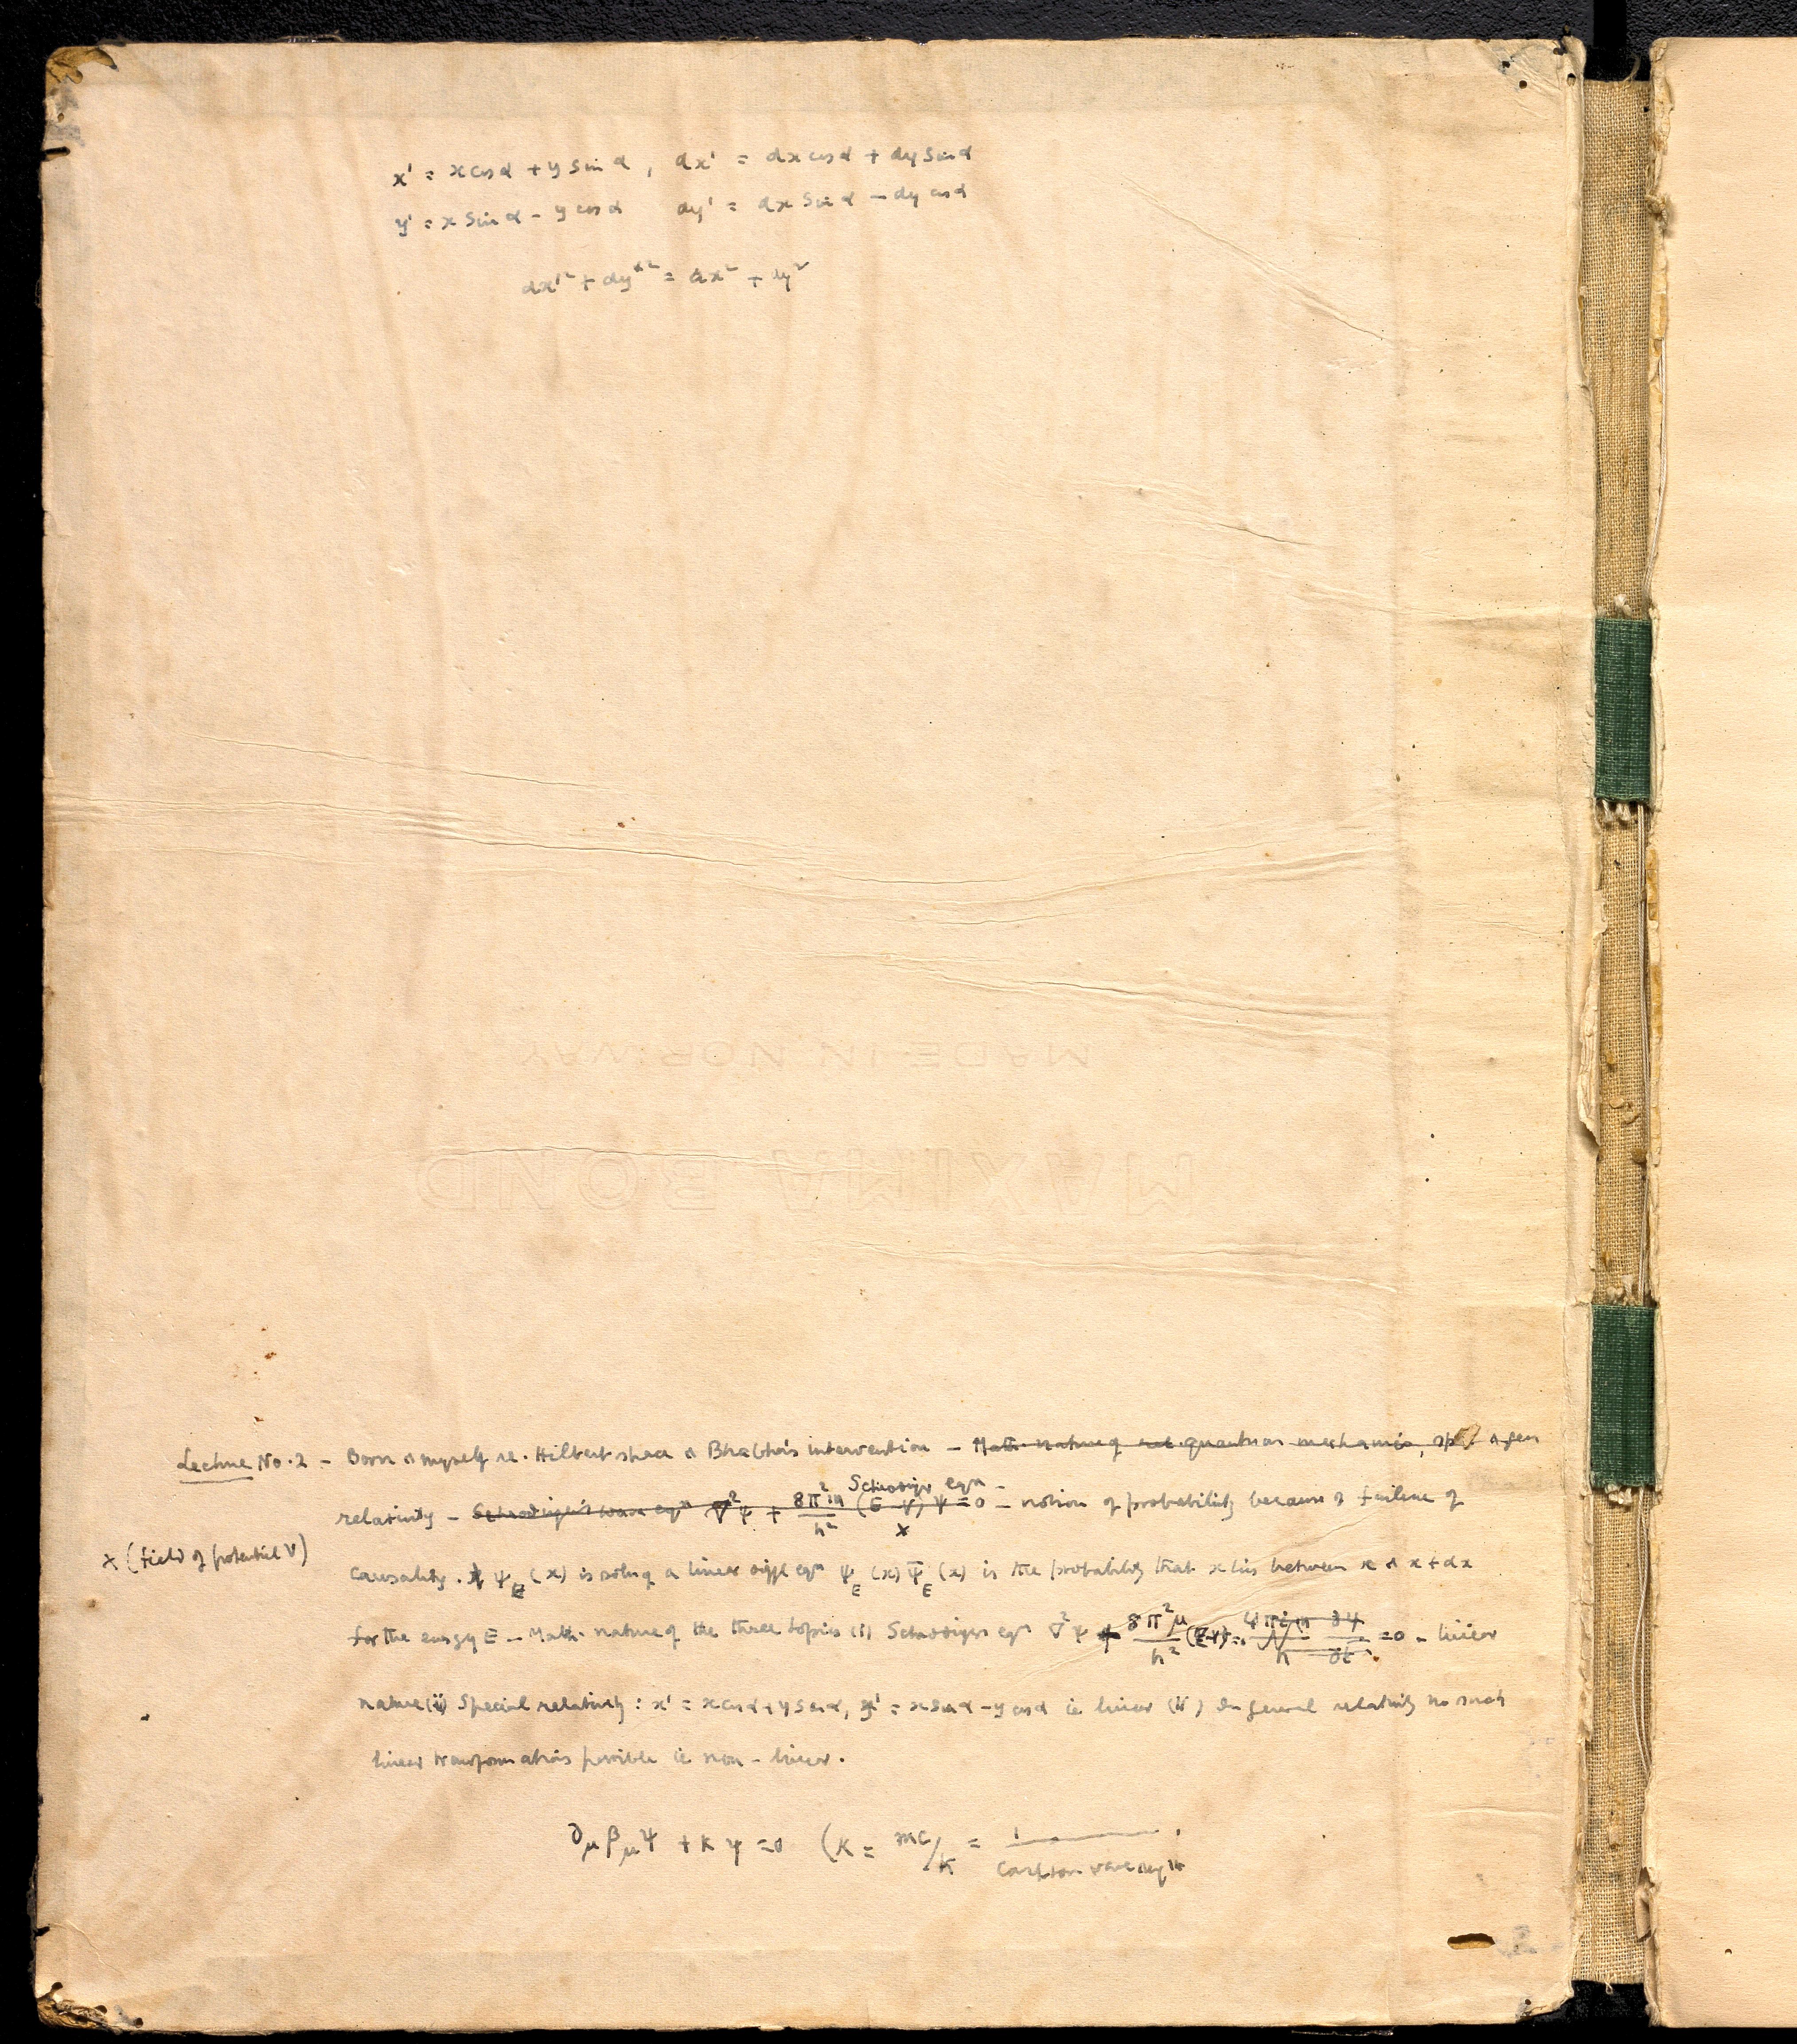 x' = x cos α + y Sin α , dx' = dx cos α + dy Sin α
y' = x Sin α - y cos α dy' = dx Sin α - dy cos α
dx'² + dy'² = dx² + dy²
MADE IN NORWAY
MAXIMA BOND
Lecture No. 2 - Born & myself re. Hilbert space & Bhabha's intervention - Math. nature of quantum mechanics, sp. & gen
Schrodigr eqn -
relativity - Schrodinger's wave eqn ∇²ψ + 8π²m/h² (E-V) ψ = 0 - notion of probability because of failure of
x (field of potential V)
causality. If ψ_E (x) is soln of a linear diffl eqn ψ_E (x) ψ̄_E (x) is the probability that x lies between x & x + dx
for the energy E - Math. nature of the three topics (i) Schrodigers eqn ∇²ψ + 8π²μ/h² (E-V) 4πim/h ∂ψ/∂t = 0 - linear
nature (ii) Special relativity : x' = x cos α + y Sin α, y' = x sin α - y cos α ie linear (iii) In general relativity no such
linear transformations possible ie non-linear.
∂_μ β_μ ψ + K ψ = 0 (K = mc/ħ = 1/Compton wave length